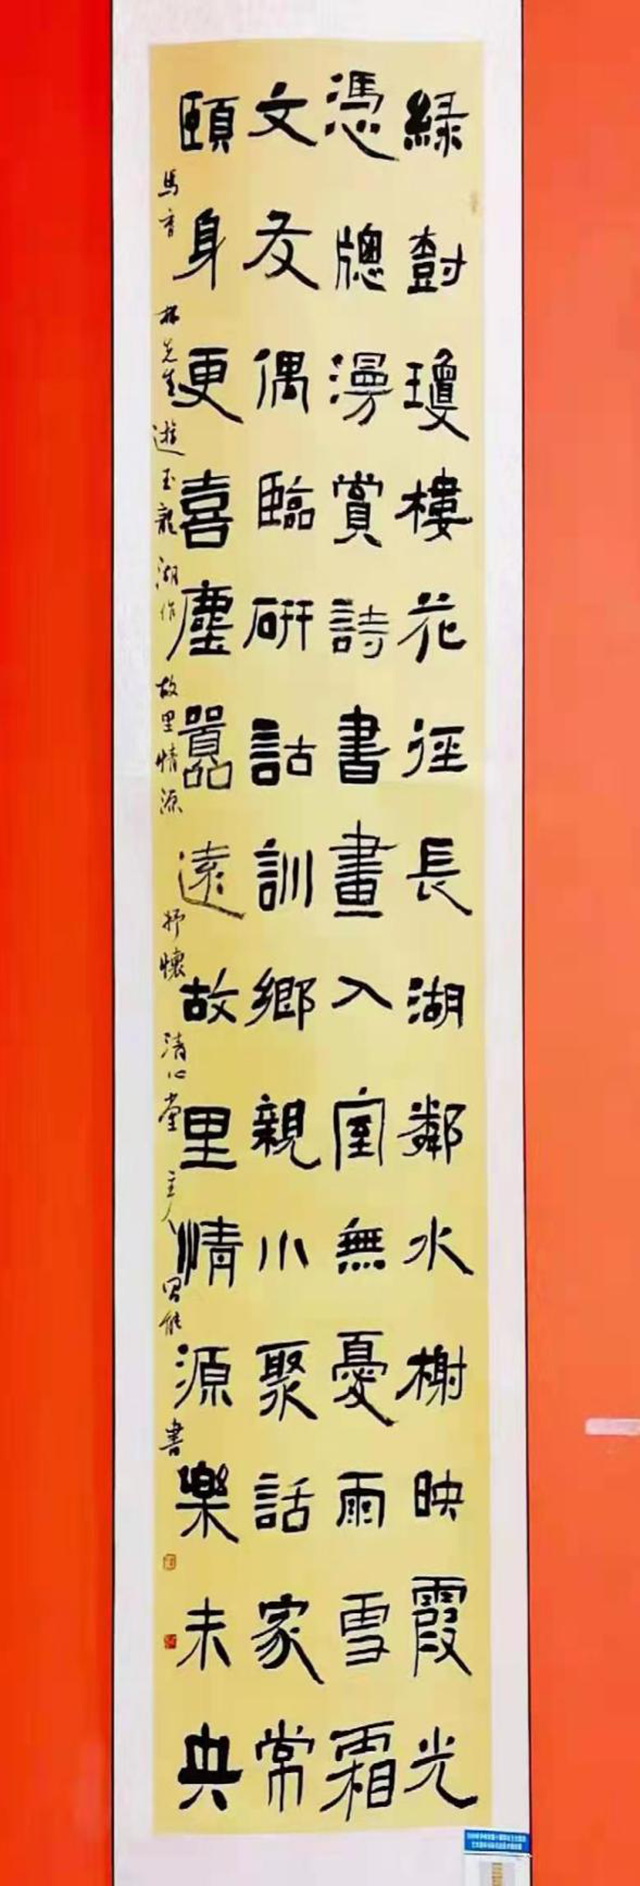 綠樹瓊樓花徑長湖鄰水榭映霞光
憑牕漫賞詩書畫入室無憂雨雪霜
文友偶臨研詁訓鄉親小聚話家常
頤身更喜塵囂遠故里情源樂未央
馬香林先生遊玉龍湖作故里情源抒懷清心堂主人書